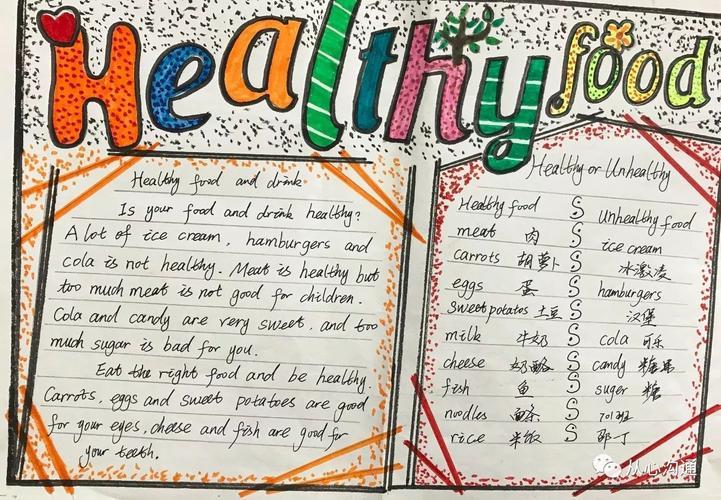 Healthy food
Healthy food and drink
Is your food and drink healthy?
A lot of ice cream, hamburgers and
cola is not healthy. Meat is healthy but
too much meat is not good for children.
Cola and candy are very sweet, and too
much sugar is bad for you.
Eat the right food and be healthy.
Carrots, eggs and sweet potatoes are good
for your eyes, cheese and fish are good for
your teeth.
Healthy or Unhealthy
Healthy food S Unhealthy food
meat 肉 S ice cream
carrots 胡萝卜 S 冰激凌
eggs 蛋 S hamburgers
sweet potatos 土豆 S 汉堡
milk 牛奶 S cola 可乐
cheese 奶酪 S candy 糖果
fish 鱼 S suger 糖
noodles 面条 S 701班
rice 米饭 S
从心沟通